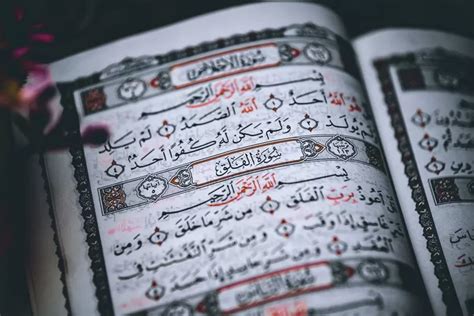 سُورَةُ الإِخْلَاصِ
بِسْمِ اللَّهِ الرَّحْمَٰنِ الرَّحِيمِ
قُلْ هُوَ اللَّهُ أَحَدٌ ۝١ اللَّهُ الصَّمَدُ ۝٢ لَمْ يَلِدْ
وَلَمْ يُولَدْ ۝٣ وَلَمْ يَكُن لَّهُ كُفُوًا أَحَدٌ ۝٤
سُورَةُ الْفَلَقِ
بِسْمِ اللَّهِ الرَّحْمَٰنِ الرَّحِيمِ
قُلْ أَعُوذُ بِرَبِّ الْفَلَقِ ۝١ مِن شَرِّ مَا خَلَقَ ۝٢ وَمِن
شَرِّ غَاسِقٍ إِذَا وَقَبَ ۝٣ وَمِن شَرِّ النَّفَّاثَاتِ فِي
الْعُقَدِ ۝٤ وَمِن شَرِّ حَاسِدٍ إِذَا حَسَدَ ۝٥
سُورَةُ النَّاسِ